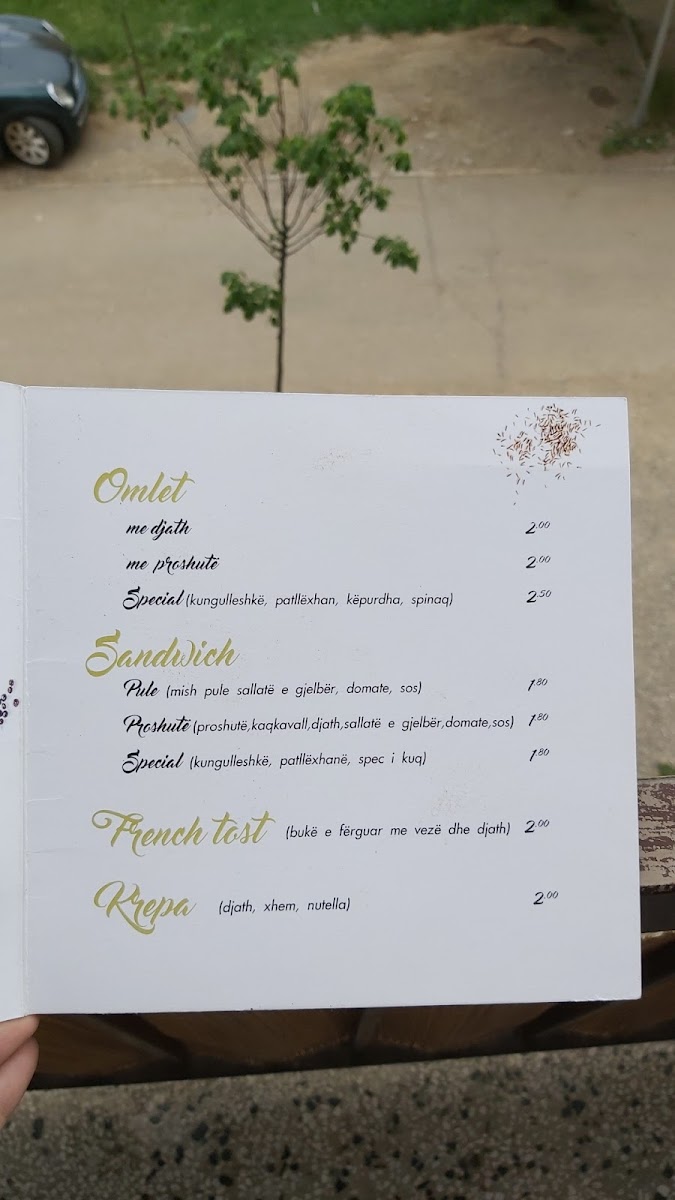 Omlet
me djath 2.00
me proshutë 2.00
Special (kungulleshkë, patllëxhan, këpurdha, spinaq) 2.50
Sandwich
Pule (mish pule sallatë e gjelbër, domate, sos) 1.80
Proshutë (proshutë,kaqkavall,djath,sallatë e gjelbër,domate,sos) 1.80
Special (kungulleshkë, patllëxhanë, spec i kuq) 1.80
French tost (bukë e fërguar me vezë dhe djath) 2.00
Krepa (djath, xhem, nutella) 2.00